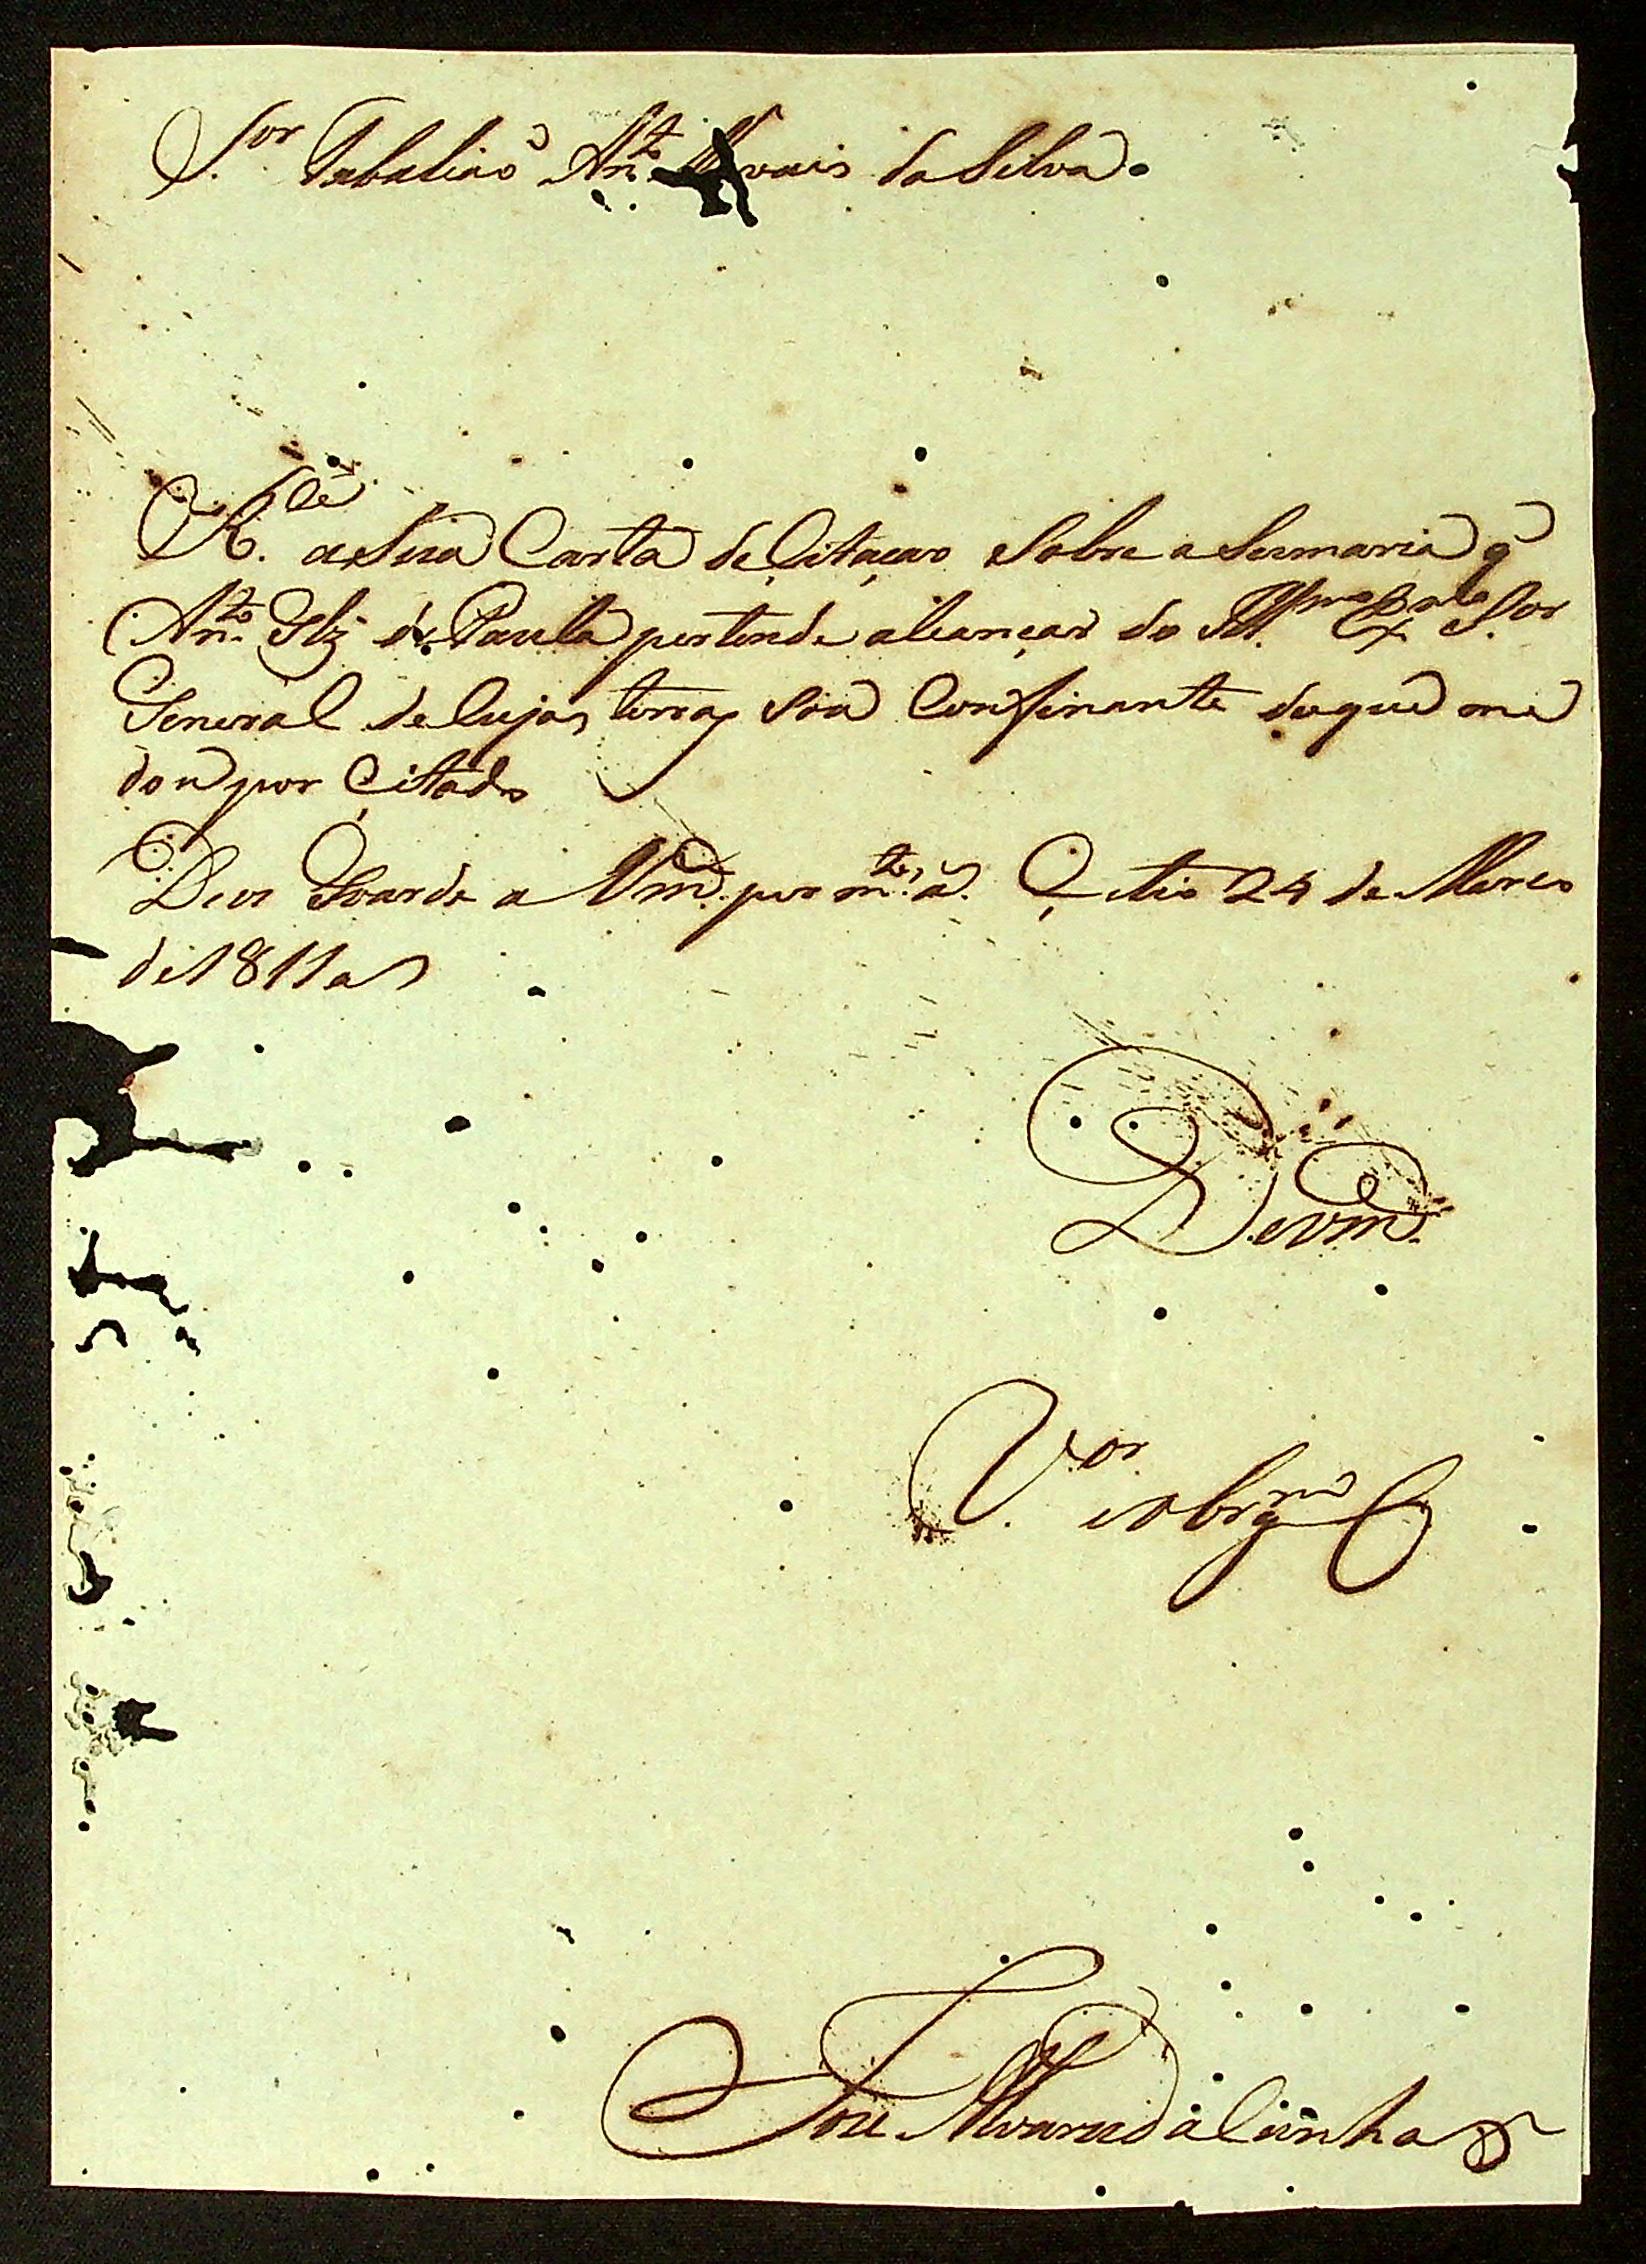 S.or Tabaliaõ An.to vais da Silva.
R.ce a Sua Carta de Citaçaõ Sobre a Sesmaria q̃
An.to de Paula pertende alcançar do Ill.mo Ex.mo S.or
General de Cujas terras Sou Confinante do que me
dou por Citado
Deos Goarde a Vm.ce por m.tes a. Citio 24 de Março
de 1811 as
De Vm.ce
V.or obrg.mo C
Joze Alvares da Cunha